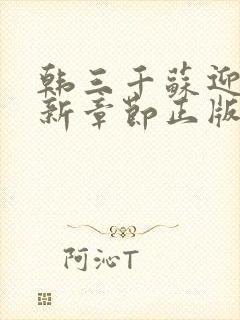 韩三千苏迎
新章节正版
阿沁T